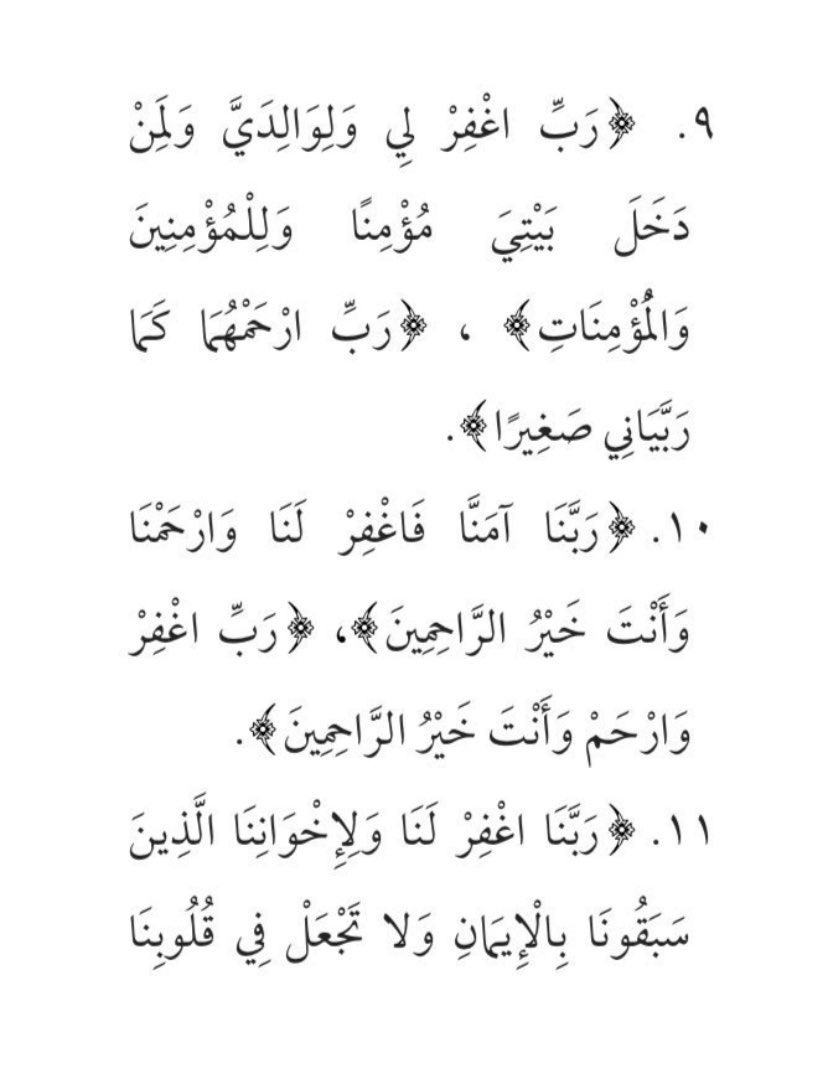 ٩. ﴿رَبِّ اغْفِرْ لِي وَلِوَالِدَيَّ وَلِمَنْ
دَخَلَ بَيْتِيَ مُؤْمِنًا وَلِلْمُؤْمِنِينَ
وَالْمُؤْمِنَاتِ﴾ ، ﴿رَبِّ ارْحَمْهُمَا كَمَا
رَبَّيَانِي صَغِيرًا﴾.
١٠. ﴿رَبَّنَا آمَنَّا فَاغْفِرْ لَنَا وَارْحَمْنَا
وَأَنْتَ خَيْرُ الرَّاحِمِينَ﴾، ﴿رَبِّ اغْفِرْ
وَارْحَمْ وَأَنْتَ خَيْرُ الرَّاحِمِينَ﴾.
١١. ﴿رَبَّنَا اغْفِرْ لَنَا وَلِإِخْوَانِنَا الَّذِينَ
سَبَقُونَا بِالْإِيمَانِ وَلا تَجْعَلْ فِي قُلُوبِنَا